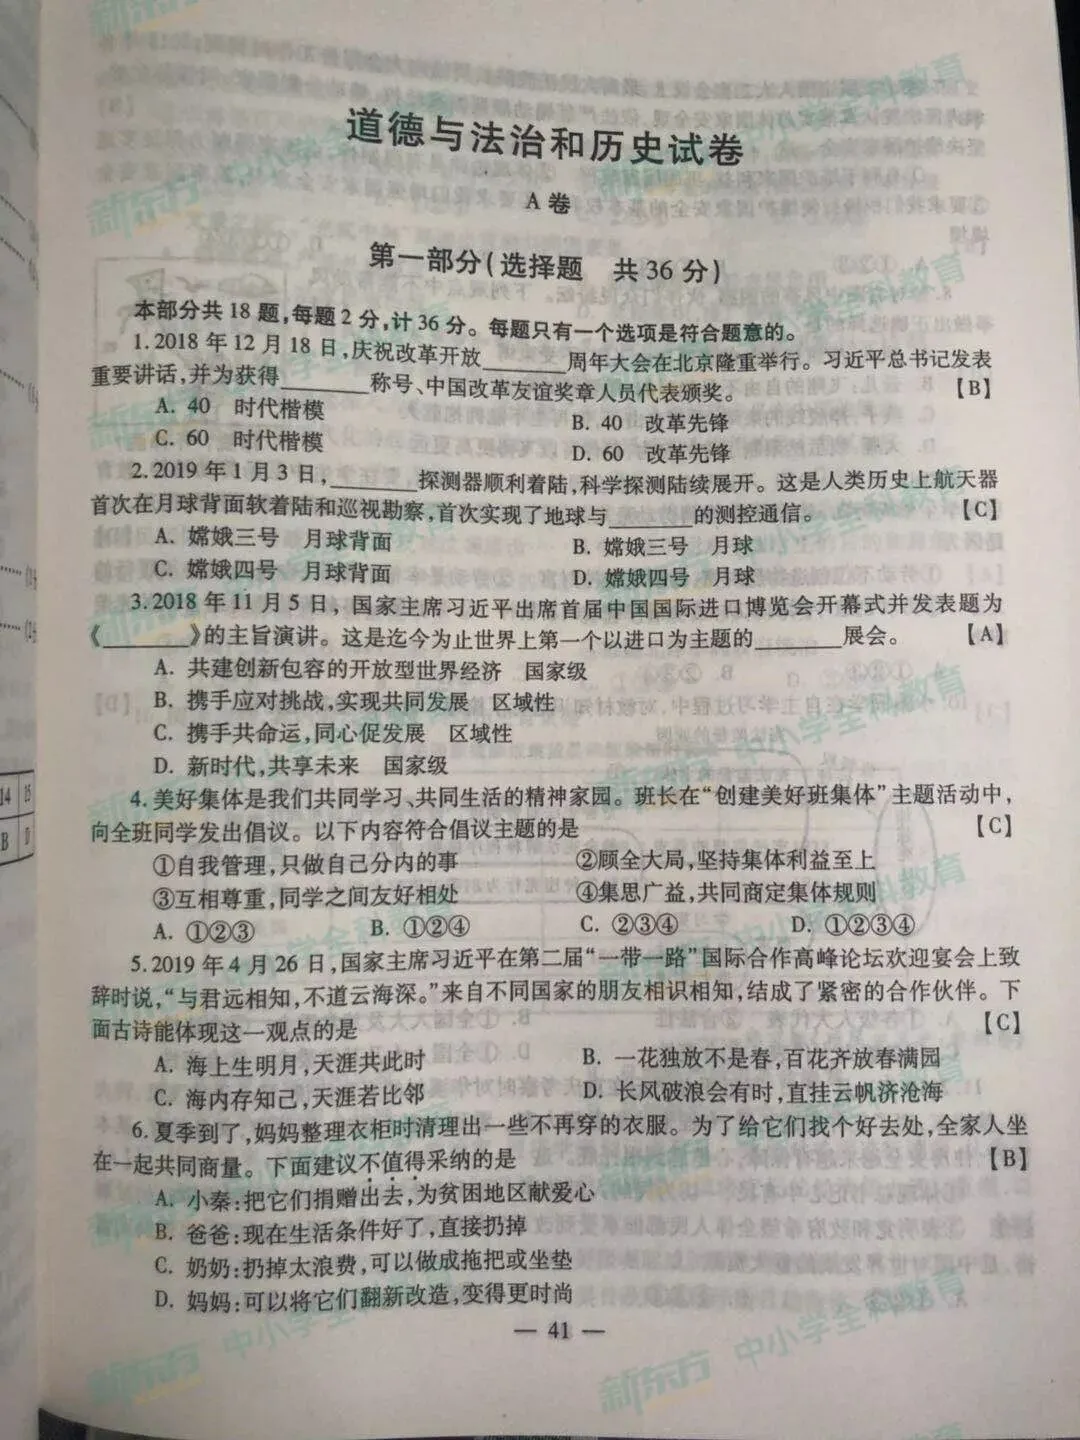 道德与法治和历史试卷
A卷
第一部分(选择题 共36分)
本部分共18题,每题2分,计36分。每题只有一个选项是符合题意的。
1.2018年12月18日,庆祝改革开放________周年大会在北京隆重举行。习近平总书记发表
重要讲话,并为获得________称号、中国改革友谊奖章人员代表颁奖。 【B】
A. 40 时代楷模 B. 40 改革先锋
C. 60 时代楷模 D. 60 改革先锋
2.2019年1月3日,________探测器顺利着陆,科学探测陆续展开。这是人类历史上航天器
首次在月球背面软着陆和巡视勘察,首次实现了地球与________的测控通信。 【C】
A. 嫦娥三号 月球背面 B. 嫦娥三号 月球
C. 嫦娥四号 月球背面 D. 嫦娥四号 月球
3.2018年11月5日,国家主席习近平出席首届中国国际进口博览会开幕式并发表题为
《________》的主旨演讲。这是迄今为止世界上第一个以进口为主题的________展会。 【A】
A. 共建创新包容的开放型世界经济 国家级
B. 携手应对挑战,实现共同发展 区域性
C. 携手共命运,同心促发展 区域性
D. 新时代,共享未来 国家级
4.美好集体是我们共同学习、共同生活的精神家园。班长在“创建美好班集体”主题活动中,
向全班同学发出倡议。以下内容符合倡议主题的是 【C】
①自我管理,只做自己分内的事 ②顾全大局,坚持集体利益至上
③互相尊重,同学之间友好相处 ④集思广益,共同商定集体规则
A. ①②③ B. ①②④ C. ②③④ D. ①②③④
5.2019年4月26日,国家主席习近平在第二届“一带一路”国际合作高峰论坛欢迎宴会上致
辞时说,“与君远相知,不道云海深。”来自不同国家的朋友相识相知,结成了紧密的合作伙伴。下
面古诗能体现这一观点的是 【C】
A. 海上生明月,天涯共此时 B. 一花独放不是春,百花齐放春满园
C. 海内存知己,天涯若比邻 D. 长风破浪会有时,直挂云帆济沧海
6.夏季到了,妈妈整理衣柜时清理出一些不再穿的衣服。为了给它们找个好去处,全家人坐
在一起共同商量。下面建议不值得采纳的是 【B】
A. 小秦:把它们捐赠出去,为贫困地区献爱心
B. 爸爸:现在生活条件好了,直接扔掉
C. 奶奶:扔掉太浪费,可以做成拖把或坐垫
D. 妈妈:可以将它们翻新改造,变得更时尚
— 41 —
新东方 中小学全科教育